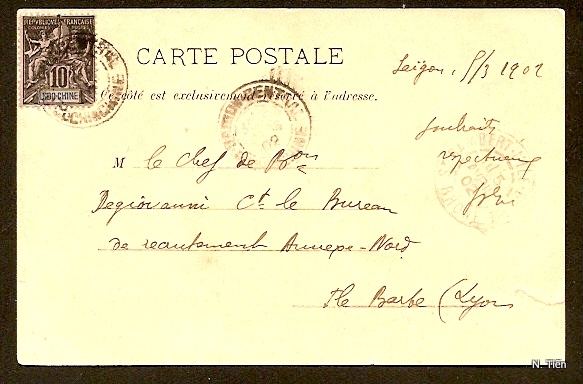 RÉPUBLIQUE FRANÇAISE
COLONIES POSTES
10
INDO-CHINE
COCHINCHINE
CARTE POSTALE
Ce côté est exclusivement réservé à l'adresse.
Saigon, 5/3 1902
souhaits
respectueux
M le Chef de Bon
Degiovanni Ct le Bureau
de recrutement Annexe-Nord
Ile Barbe (Lyon)
N. Tien